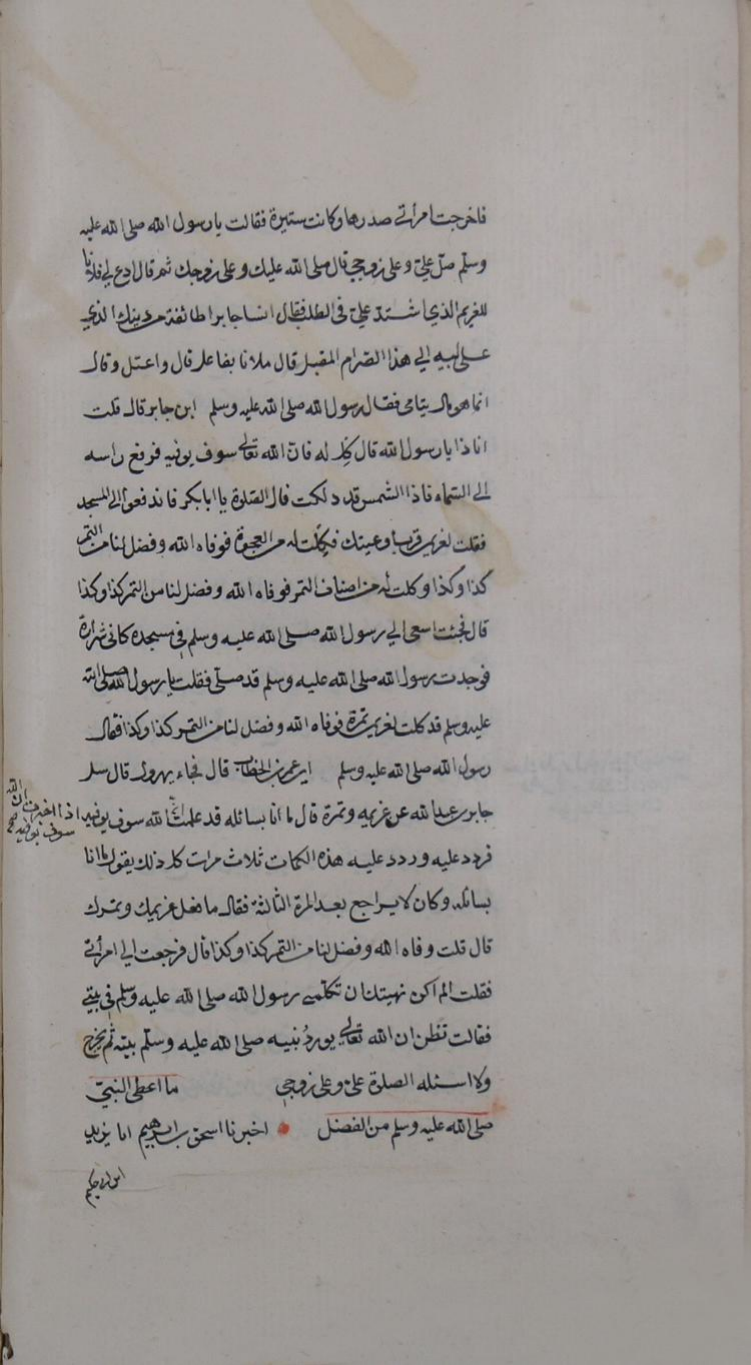 فاخرجت امرأتي صدرها وكانت ستيرة فقالت يا رسول الله صلى الله عليه
وسلم صل علي وعلى زوجي قال صلى الله عليك وعلى زوجك ثم قال ادع لي فلانا
للغريم الذي اشتد علي في الطلب فقال انسا جابرا طائفة من دينك الذي
على ابيه الى هذا الصرام المقبل قال ما انا بفاعل قال واعتل وقال
انما هو مال يتامى فقال رسول الله صلى الله عليه وسلم اين جابر قال قلت
انا ذا يا رسول الله قال كل له فان الله تعالى سوف يوفيه فرفع راسه
الى السماء فاذا الشمس قد دلكت قال الصلوة يا ابا بكر فاندفعوا الى المسجد
فقلت لغريمي قرب اوعيتك فكلت له من العجوة فوفاه الله وفضل لنا من التمر
كذا وكذا وكلت له من اصناف التمر فوفاه الله وفضل لنا من التمر كذا وكذا
قال فجئت اسعى الى رسول الله صلى الله عليه وسلم في مسجده كاني شرارة
فوجدت رسول الله صلى الله عليه وسلم قد صلى فقلت يا رسول الله صلى الله
عليه وسلم قد كلت لغريمي تمرة فوفاه الله وفضل لنا من التمر كذا وكذا فقال
رسول الله صلى الله عليه وسلم اين عمر بن الخطاب قال فجاء يهرول قال سل
جابر بن عبد الله عن غريمه وتمرة قال ما انا بسائله قد علمت ان الله سوف يوفيه
اذا اخبرت ان الله
سوف يوفيه صح
فردد عليه وردد عليه هذه الكلمات ثلاث مرات كل ذلك يقول ما انا
بسائله وكان لا يراجع بعد المرة الثالثة فقال ما فعل غريمك وتمرك
قال قلت وفاه الله وفضل لنا من التمر كذا وكذا قال فرجعت الى امرأتي
فقلت الم اكن نهيتك ان تكلمي رسول الله صلى الله عليه وسلم في بيتي
فقالت تظن ان الله تعالى يورد نبيه صلى الله عليه وسلم بيتي ثم يخرج
ولا اسئله الصلوة علي وعلى زوجي ما اعطى النبي
صلى الله عليه وسلم من الفضل اخبرنا اسحق بن ابراهيم انا يزيد
ابن ابي حكيم